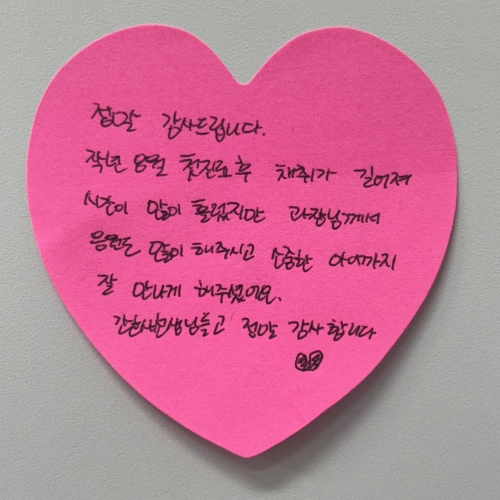 정말 감사드립니다.
작년 8월 첫진료후 채취가 길어져
시간이 많이 흘렀지만 과장님께서
응원도 많이 해주시고 소중한 아이까지
잘 만나게 해주셨어요.
간호사선생님들고 정말 감사합니다